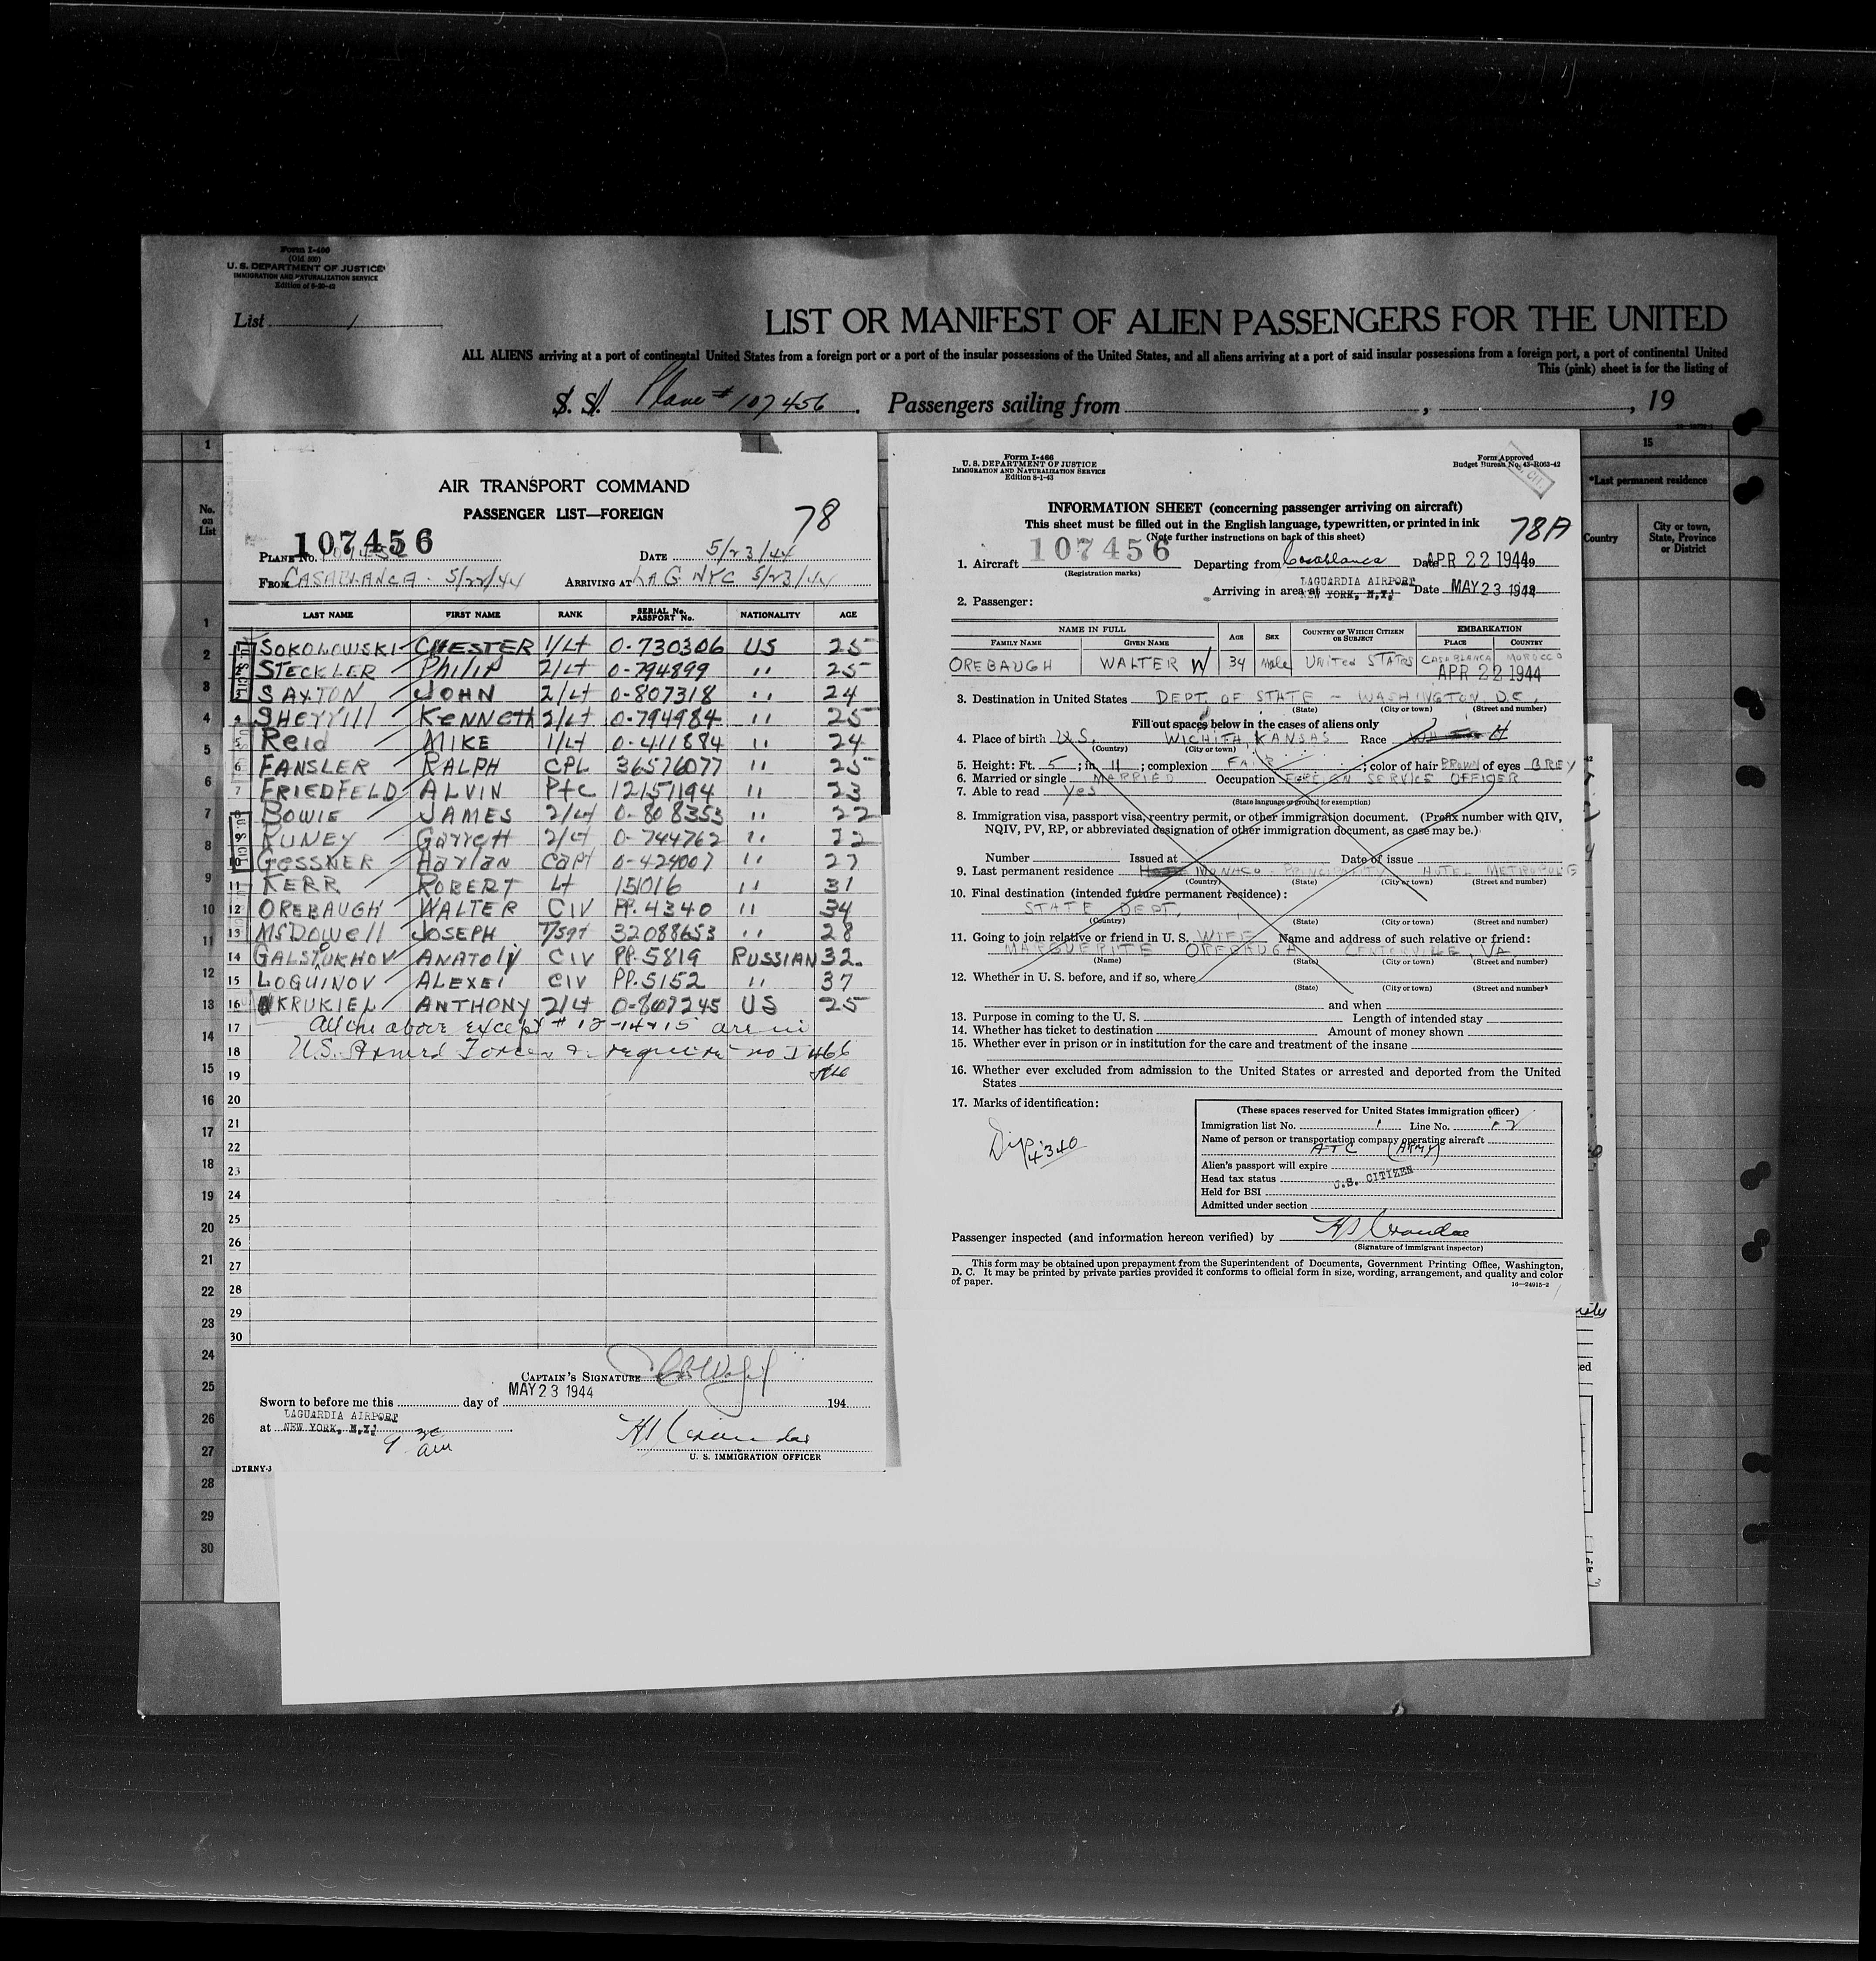 Form I-400
(Old 500)
U. S. DEPARTMENT OF JUSTICE
IMMIGRATION AND NATURALIZATION SERVICE
List 1
LIST OR MANIFEST OF ALIEN PASSENGERS FOR THE UNITED
ALL ALIENS arriving at a port of continental United States from a foreign port or a port of the insular possessions of the United States, and all aliens arriving at a port of said insular possessions from a foreign port, a port of continental United
This (pink) sheet is for the listing of
S. S. Plane # 107456. Passengers sailing from , , 19
1
No. on List
15
*Last permanent residence
Country
City or town, State, Province or District
1
2
3
4
5
6
7
8
9
10
11
12
13
14
15
16
17
18
19
20
21
22
23
24
25
26
27
28
29
30
AIR TRANSPORT COMMAND
PASSENGER LIST—FOREIGN
78
107456
PLANE NO. DATE 5/23/44
FROM CASABLANCA - 5/22/44 ARRIVING AT LAG NYC 5/23/44
LAST NAME FIRST NAME RANK SERIAL No. PASSPORT No. NATIONALITY AGE
1 SOKOLOWSKI CHESTER 1/Lt 0-730306 US 25
2 STECKLER Philip 2/Lt 0-794899 " 25
3 SAXTON JOHN 2/Lt 0-807318 " 24
4 SHERRIll KENNETH 2/Lt 0-794984 " 25
5 Reid MIKE 1/Lt 0-411884 " 24
6 FANSLER RALPH CPL 36576077 " 25
7 FRIEDFELD ALVIN Pfc 12151194 " 23
8 BOWIE JAMES 2/Lt 0-808353 " 22
9 RUNEY Garrett 2/Lt 0-744762 " 22
10 GESSNER Harlan Capt 0-424007 " 27
11 KERR ROBERT Lt 151016 " 31
12 OREBAUGH WALTER CIV PP. 4340 " 34
13 McDowell JOSEPH T/Sgt 32088653 " 28
14 GALSTUKHOV ANATOLIY CIV PP. 5819 RUSSIAN 32.
15 LOGUINOV ALEXEI CIV PP. 5152 " 37
16 KRUKIEL ANTHONY 2/Lt 0-807245 US 25
17 All the above except # 12-14+15 are in
18 U.S. Armed Forces & require no I 466
19
20
21
22
23
24
25
26
27
28
29
30
CAPTAIN'S SIGNATURE
MAY 23 1944
Sworn to before me this day of 194
LAGUARDIA AIRPORT
at NEW YORK, N.Y.
9 30 am
U. S. IMMIGRATION OFFICER
Form I-466
U. S. DEPARTMENT OF JUSTICE
IMMIGRATION AND NATURALIZATION SERVICE
Edition 8-1-43
Form Approved
Budget Bureau No. 43-R063-42
INFORMATION SHEET (concerning passenger arriving on aircraft)
This sheet must be filled out in the English language, typewritten, or printed in ink
(Note further instructions on back of this sheet)
78A
1. Aircraft 107456 Departing from Casablanca Date APR 22 1944
(Registration marks)
LAGUARDIA AIRPORT
Arriving in area at NEW YORK, N.Y. Date MAY 23 1944
2. Passenger:
NAME IN FULL AGE SEX COUNTRY OF WHICH CITIZEN OR SUBJECT EMBARKATION
FAMILY NAME GIVEN NAME PLACE COUNTRY
OREBAUGH WALTER W 34 Male United STATES CASABLANCA MOROCCO
APR 22 1944
3. Destination in United States DEPT. OF STATE - WASHINGTON, D.C.
(State) (City or town) (Street and number)
Fill out spaces below in the cases of aliens only
4. Place of birth U.S. WICHITA, KANSAS Race
(Country) (City or town)
5. Height: Ft. 5; in 11; complexion FAIR; color of hair BROWN of eyes GREY
6. Married or single MARRIED Occupation FOREIGN SERVICE OFFICER
7. Able to read Yes
(State language or ground for exemption)
8. Immigration visa, passport visa, reentry permit, or other immigration document. (Prefix number with QIV,
NQIV, PV, RP, or abbreviated designation of other immigration document, as case may be.)
Number Issued at Date of issue
9. Last permanent residence MONACO - PRINCIPALITY HOTEL METROPOLE
(Country) (State) (City or town) (Street and number)
10. Final destination (intended future permanent residence):
STATE DEPT,
(Country) (State) (City or town) (Street and number)
11. Going to join relative or friend in U. S. WIFE Name and address of such relative or friend:
MARGUERITE OREBAUGH CENTERVILLE, VA.
(Name) (State) (City or town) (Street and number)
12. Whether in U. S. before, and if so, where
(State) (City or town) (Street and number)
and when
13. Purpose in coming to the U. S. Length of intended stay
14. Whether has ticket to destination Amount of money shown
15. Whether ever in prison or in institution for the care and treatment of the insane
16. Whether ever excluded from admission to the United States or arrested and deported from the United
States
17. Marks of identification:
Dip 4340
(These spaces reserved for United States immigration officer)
Immigration list No. 1 Line No. 12
Name of person or transportation company operating aircraft
ATC (ARMY)
Alien's passport will expire
Head tax status U.S. CITIZEN
Held for BSI
Admitted under section
Passenger inspected (and information hereon verified) by
(Signature of immigrant inspector)
This form may be obtained upon prepayment from the Superintendent of Documents, Government Printing Office, Washington,
D. C. It may be printed by private parties provided it conforms to official form in size, wording, arrangement, and quality and color
of paper. 16—24915-2